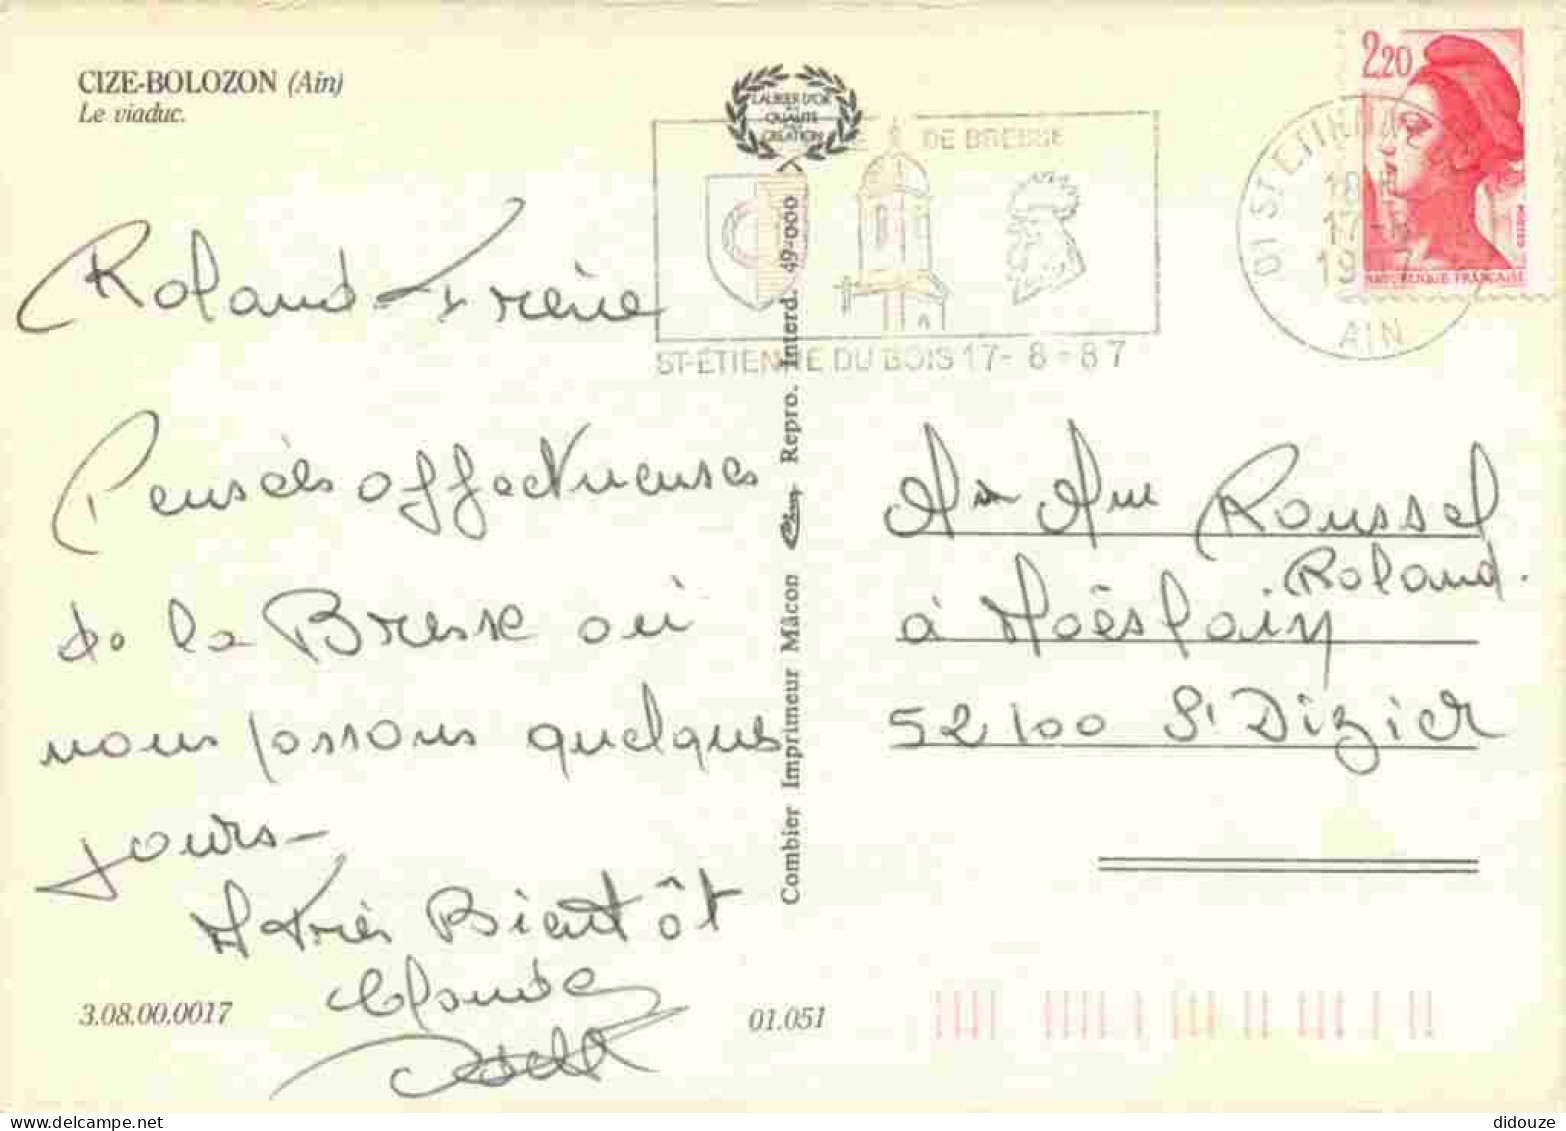 CIZE-BOLOZON (Ain)
Le viaduc.
LAURIER D'OR
QUALITÉ
CRÉATION
DE BRESSE
ST-ÉTIENNE DU BOIS 17-8-87
01 ST ETIENNE
17-8
AIN
2,20
REPUBLIQUE FRANÇAISE
Roland + Irène
Pensées affectueuses
de la Bresse où
nous passons quelques
jours-
A très Bientôt
Claude
Combier Imprimeur Mâcon Repro. Interd. 49-000
Mr Mme Roussel
Roland.
à Moëslain
52100 St Dizier
3.08.00.0017
01.051
didouze